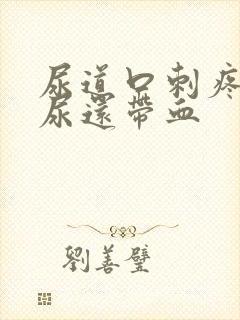 尿道口刺疼
尿還帶血
劉善璧